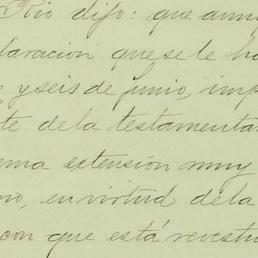 Rio dijo: que aun
laracion que se le ha
y seis de Junio, imp
te de la testamentar
ma extension muy
no, en virtud de la
con que está revesti